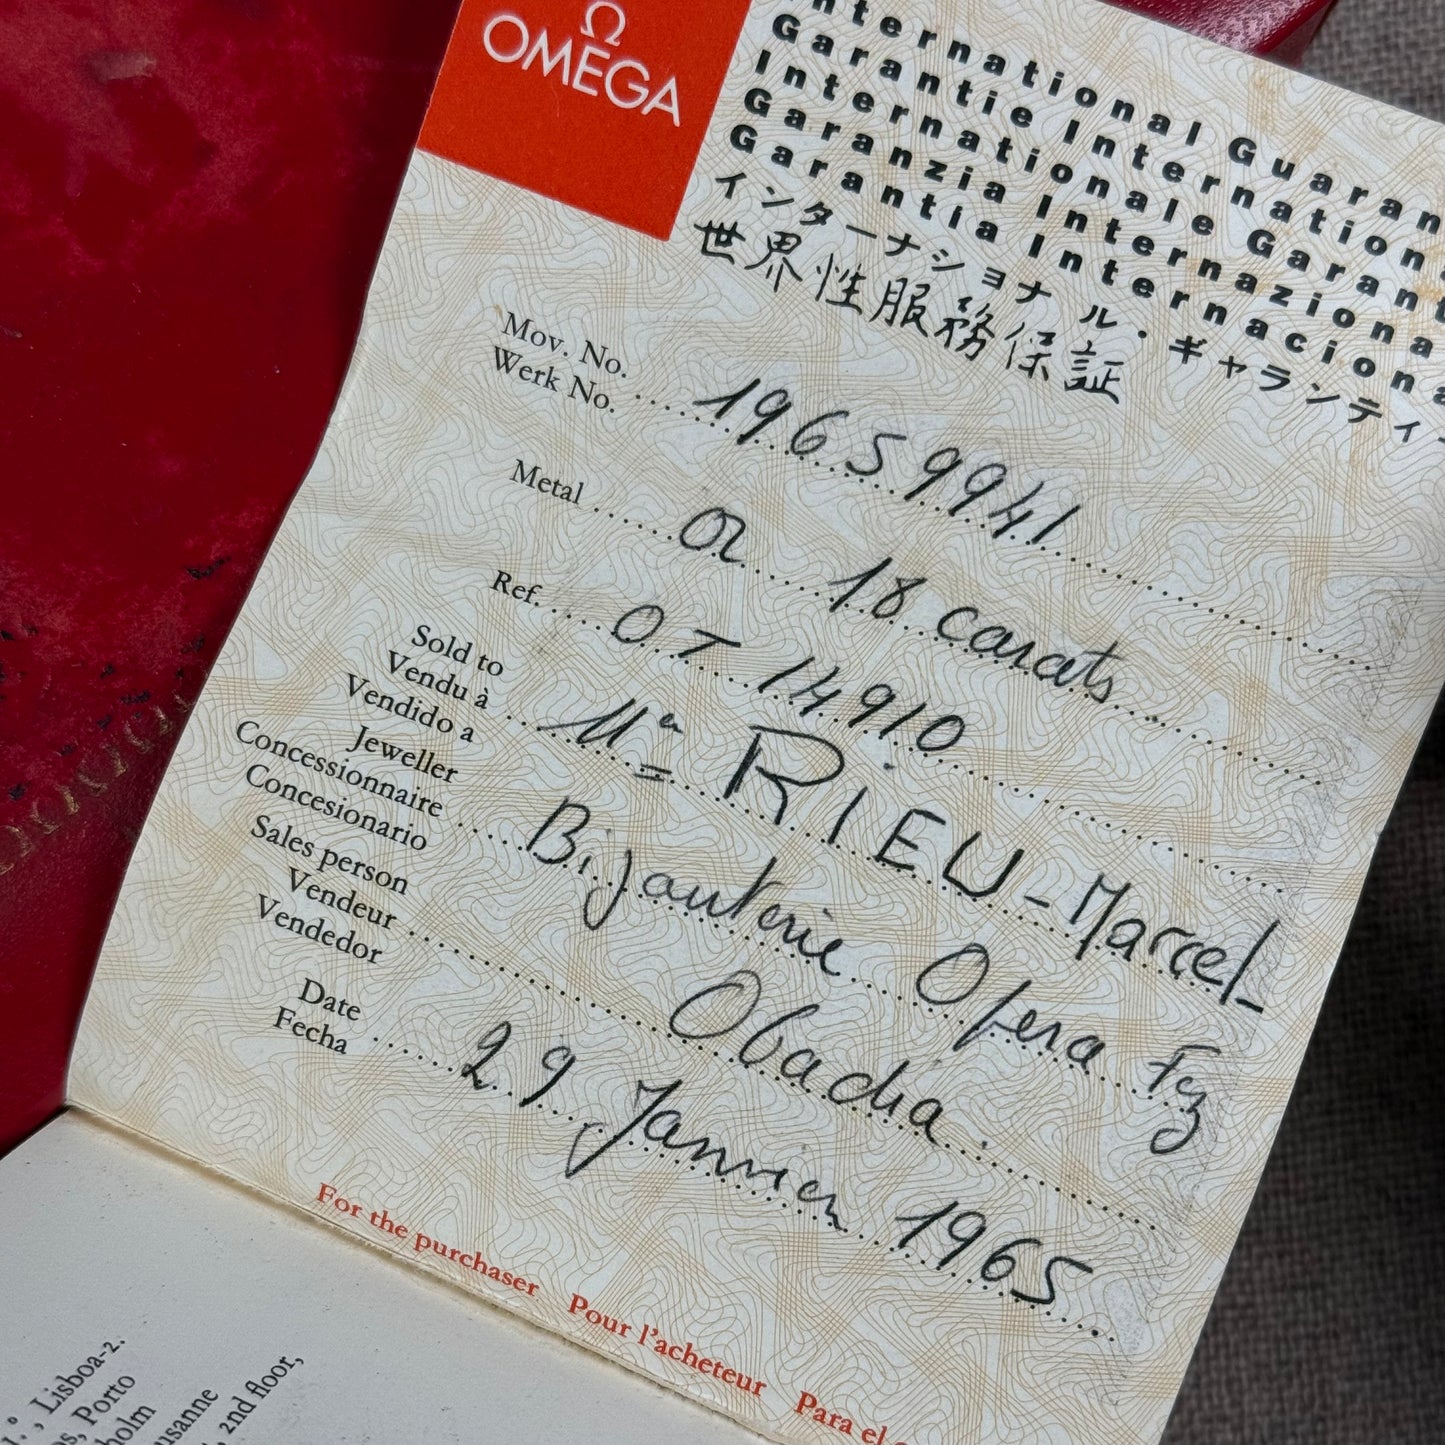 Ω
OMEGA
International Guaran
Garantie Internationa
Internationale Garant
Garanzia Internaziona
Garantia Internaciona
インターナショナル・ギャランティ
世界性服務保証
Mov. No.
Werk No.
19659941
Metal
or 18 carats
Ref.
OT 14910
Sold to
Vendu à
Vendido a
Mr RIEU-Marcel-
Jeweller
Concessionnaire
Concesionario
Bijouterie Opera Fez
Sales person
Vendeur
Vendedor
Obadia.
Date
Fecha
29 Janvier 1965
For the purchaser Pour l'acheteur Para el
, Lisboa-2.
, Porto
, 2nd floor,